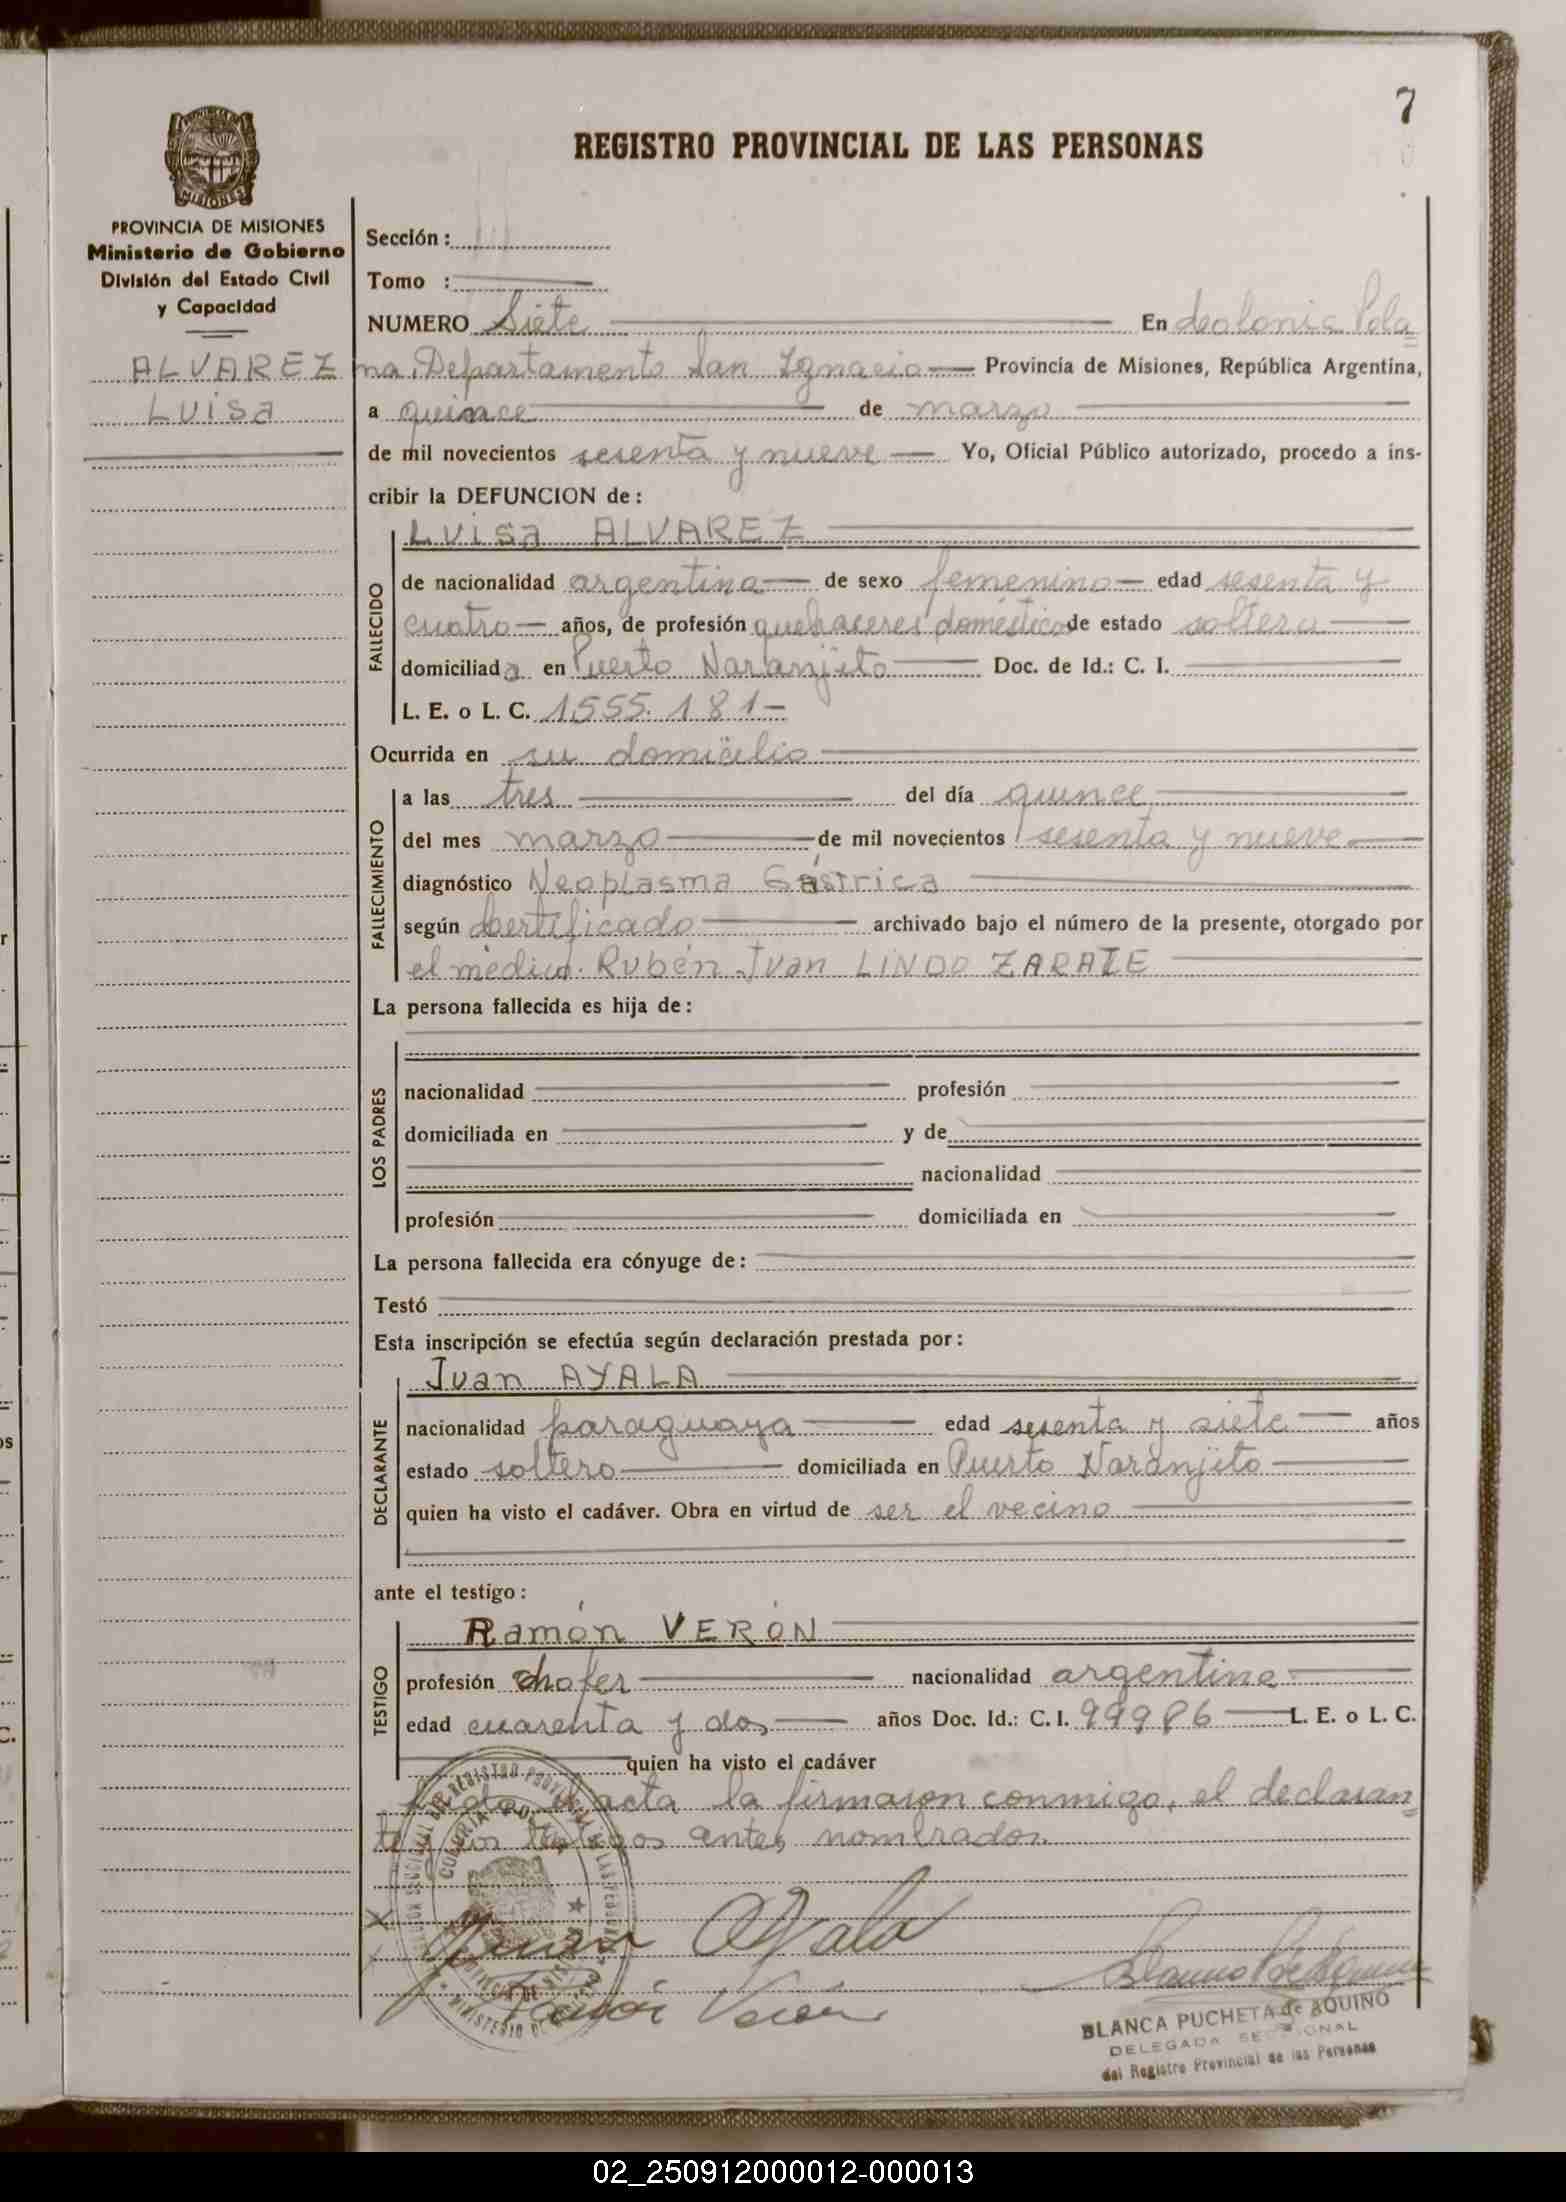 7
REGISTRO PROVINCIAL DE LAS PERSONAS
MISIONES
PROVINCIA DE MISIONES
Ministerio de Gobierno
División del Estado Civil
y Capacidad
ALVAREZ
Luisa
Sección :
Tomo :
NUMERO Siete En Colonia Pola=
na, Departamento San Ignacio Provincia de Misiones, República Argentina,
a quince de marzo
de mil novecientos sesenta y nueve Yo, Oficial Público autorizado, procedo a ins-
cribir la DEFUNCION de :
Luisa ALVAREZ
FALLECIDO
de nacionalidad argentina de sexo femenino edad sesenta y
cuatro años, de profesión quehaceres domésticos de estado soltera
domiciliada en Puerto Naranjito Doc. de Id.: C. I.
L. E. o L. C. 1.555.181-
Ocurrida en su domicilio
FALLECIMIENTO
a las tres del día quince
del mes marzo de mil novecientos sesenta y nueve
diagnóstico Neoplasma Gástrica
según Certificado archivado bajo el número de la presente, otorgado por
el médico. Rubén Juan LINDO ZARATE
La persona fallecida es hija de :
LOS PADRES
nacionalidad profesión
domiciliada en y de
nacionalidad
profesión domiciliada en
La persona fallecida era cónyuge de :
Testó
Esta inscripción se efectúa según declaración prestada por :
Juan AYALA
DECLARANTE
nacionalidad paraguaya edad sesenta y siete años
estado soltero domiciliada en Puerto Naranjito
quien ha visto el cadáver. Obra en virtud de ser el vecino
ante el testigo :
Ramón VERÓN
TESTIGO
profesión chofer nacionalidad argentina
edad cuarenta y dos años Doc. Id.: C. I. 99986 L. E. o L. C.
quien ha visto el cadáver
acta la firmaron conmigo, el declaran=
te y los testigos antes nombrados.
Juan Ayala
Ramón Verón
BLANCA PUCHETA de AQUINO
DELEGADA SECCIONAL
del Registro Provincial de las Personas
02_250912000012-000013